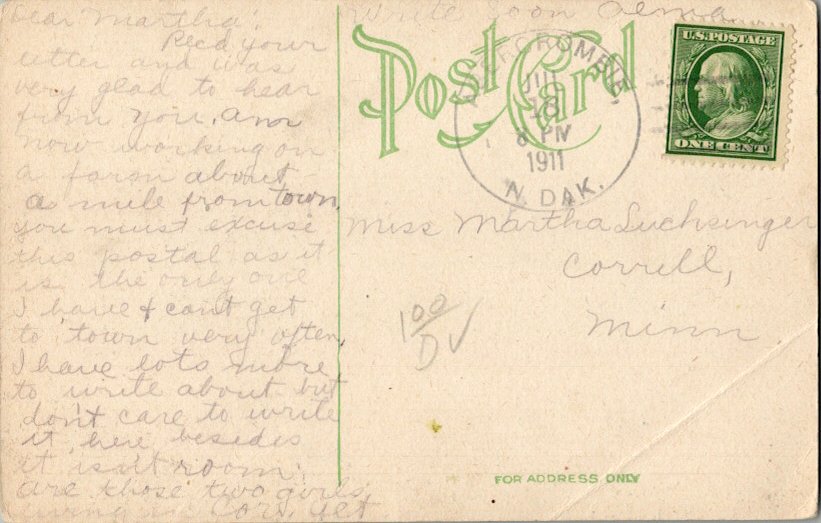 Dear Martha:
Rec'd your
letter and was
very glad to hear
from you, am
now working on
a farm about
a mile from town,
you must excuse
this postal as it
is the only one
I have & can't get
to town very often,
I have lots more
to write about but
don't care to write
it here besides
it isn't room.
are those two girls
living in Cor. yet
Write soon
Post Card
ABERCROMBIE,
JUL
18
8 PM
1911
N. DAK.
U.S. POSTAGE
ONE CENT
Miss Martha Luchsinger
Correll,
Minn
100
D ✓
FOR ADDRESS ONLY